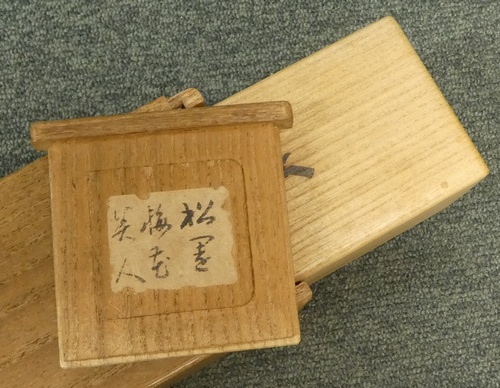 松園
梅花
美人